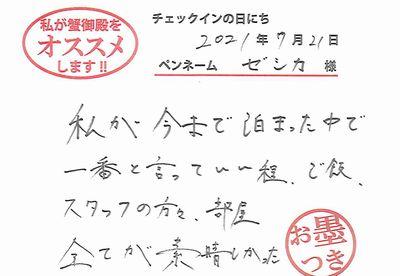 私が蟹御殿を
オススメ
します!!
チェックインの日にち
2021年7月21日
ペンネーム ゼシカ 様
私が今まで泊まった中で
一番と言っていい程、ご飯、
スタッフの方々、部屋
全てが素晴しかった
お墨つき